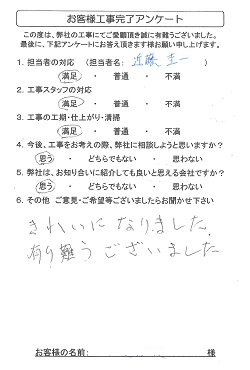 お客様工事完了アンケート
この度は、弊社の工事にてご愛顧頂き誠に有難うございました。
最後に、下記アンケートにお答え頂きます様お願い申し上げます。
1. 担当者の対応 (担当者名: 近藤 圭一 )
満足 ・ 普通 ・ 不満
2. 工事スタッフの対応
満足 ・ 普通 ・ 不満
3. 工事の工期・仕上がり・清掃
満足 ・ 普通 ・ 不満
4. 今後、工事をお考えの際、弊社に相談しようと思いますか?
思う ・ どちらでもない ・ 思わない
5. 弊社は、お知り合いに紹介しても良いと思える会社ですか?
思う ・ どちらでもない ・ 思わない
6. その他 ご意見・ご希望等ございましたらお聞かせ下さい
きれいになりました
有り難うございました
お客様の名前: 様